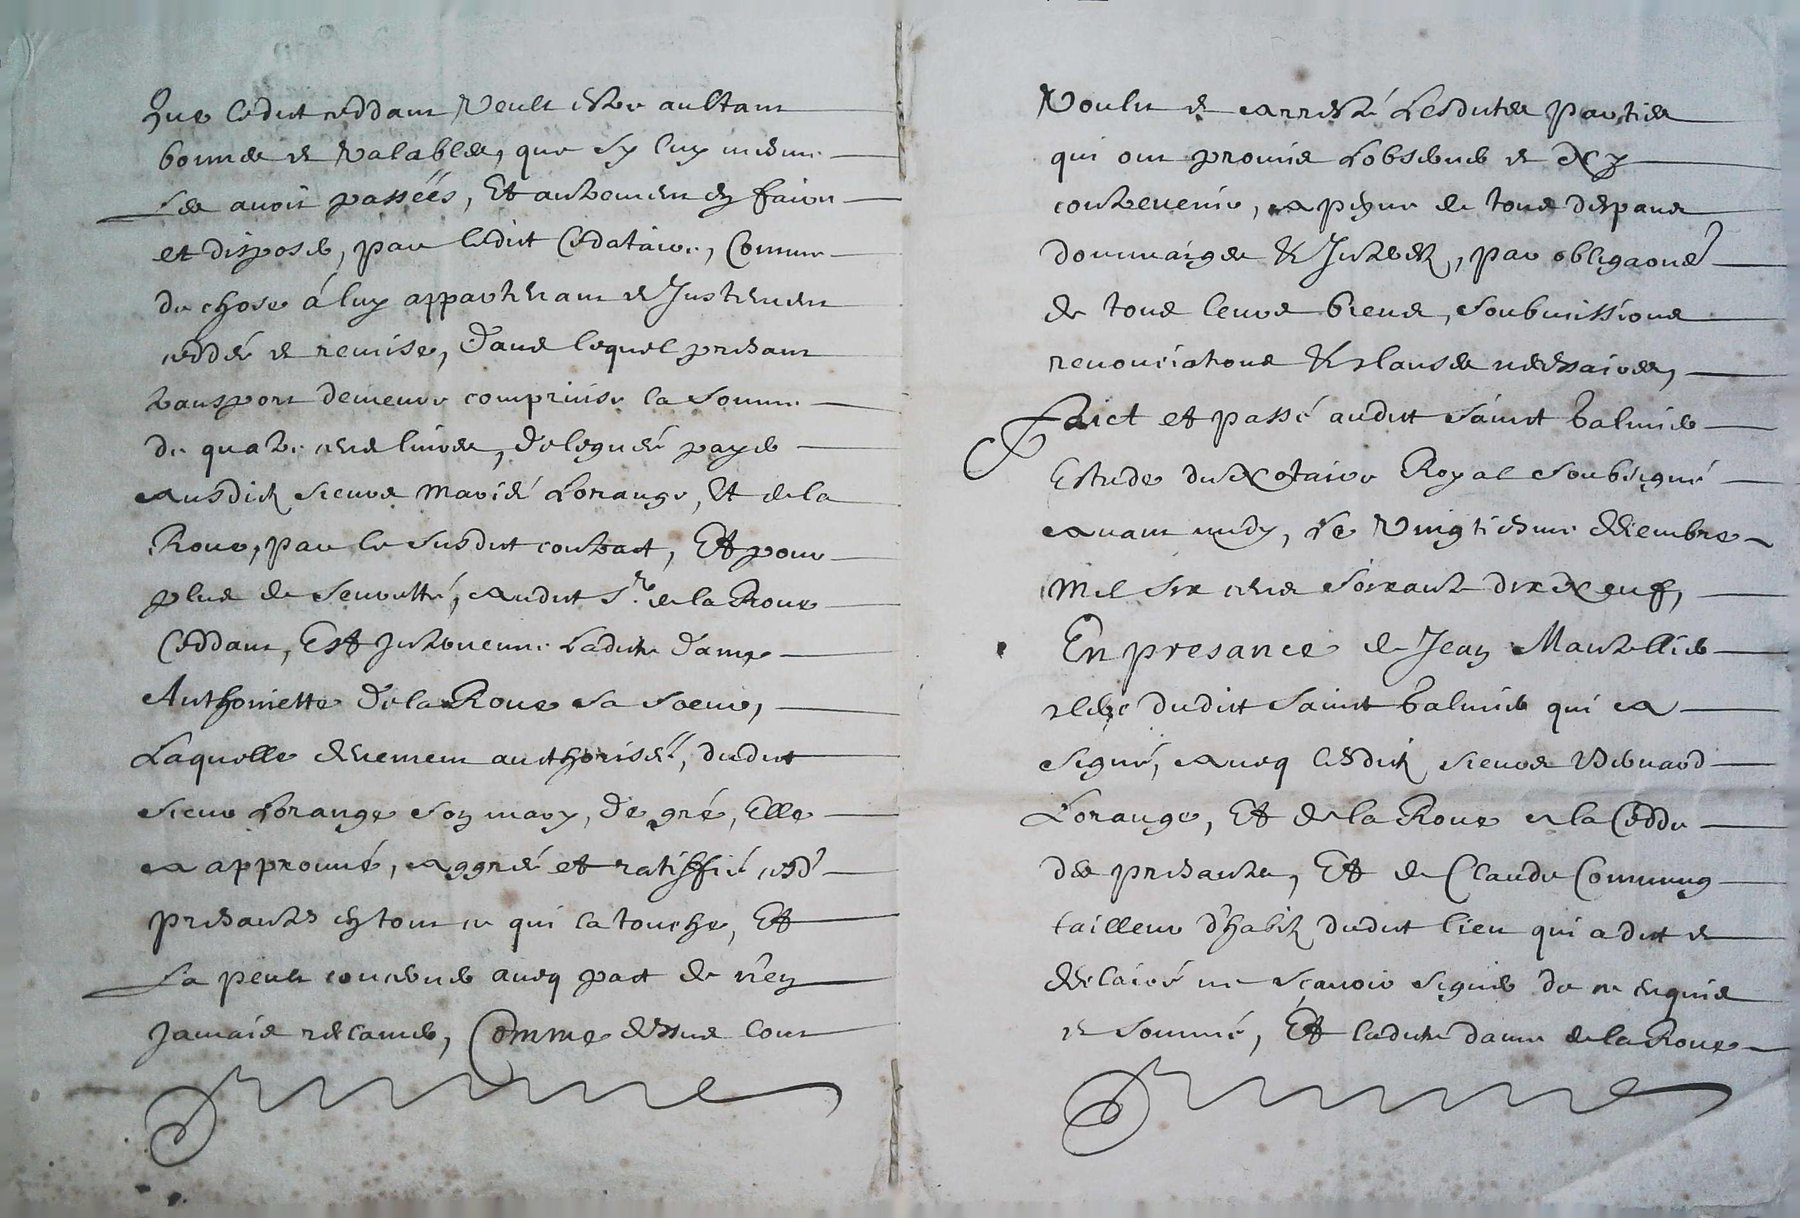 Que ledit ceddant veult estre aultant
bonnes et valables, que sy luy mesme
les avoit passées, Et autrement en faire
et disposer, par ledit Cedataire, Comme
de chose à luy appartenant et Justement
ceddée et remise, dans lequel presant
transport demeure comprinse la somme
de quatre cens livres, deleguée payer
ausdictz sieurs mariés Lorange, Et de la
Roue, par le susdit contract, Et pour
plus de seuretté, audit Sr. de la Roue
Ceddant, Est Intervenue Ladite dame
Anthoinette de la Roue sa soeur,
Laquelle deuement authorisée, dudit
sieur Lorange son mary, de gré, Elle
a approuvé, aggréé et ratiffié cesd.
presantes en tout ce qui la touche, Et
La peult concerner avecq pact de n'en
Jamais reclamer, Comme dessus l'ont
Voulu et arresté Lesdites parties
qui ont promis L'observer et N'y
contrevenir, a peyne de tous despans
dommaiges & Interestz, par obliga͠ons
de tous leurs biens, soubmissions
renonciations & clauses necessaires,
Faict et passé audit sainct Galmier
Estude du Notaire Royal soubsigné
avant midy, Le Vingtiesme decembre
Mil six cens soixante dix Neuf,
En presance de Jean Mantellier
clerc dudit sainct Galmier qui a
signé, avecq lesditz sieurs
Lorange, Et de la Roue a la Cedde
des presantes, Et de Claude Commung
tailleur d'habitz dudit lieu qui a dit et
declairé ne sçavoir signer de ce enquis
et sommé, Et ladite dame de la Roue